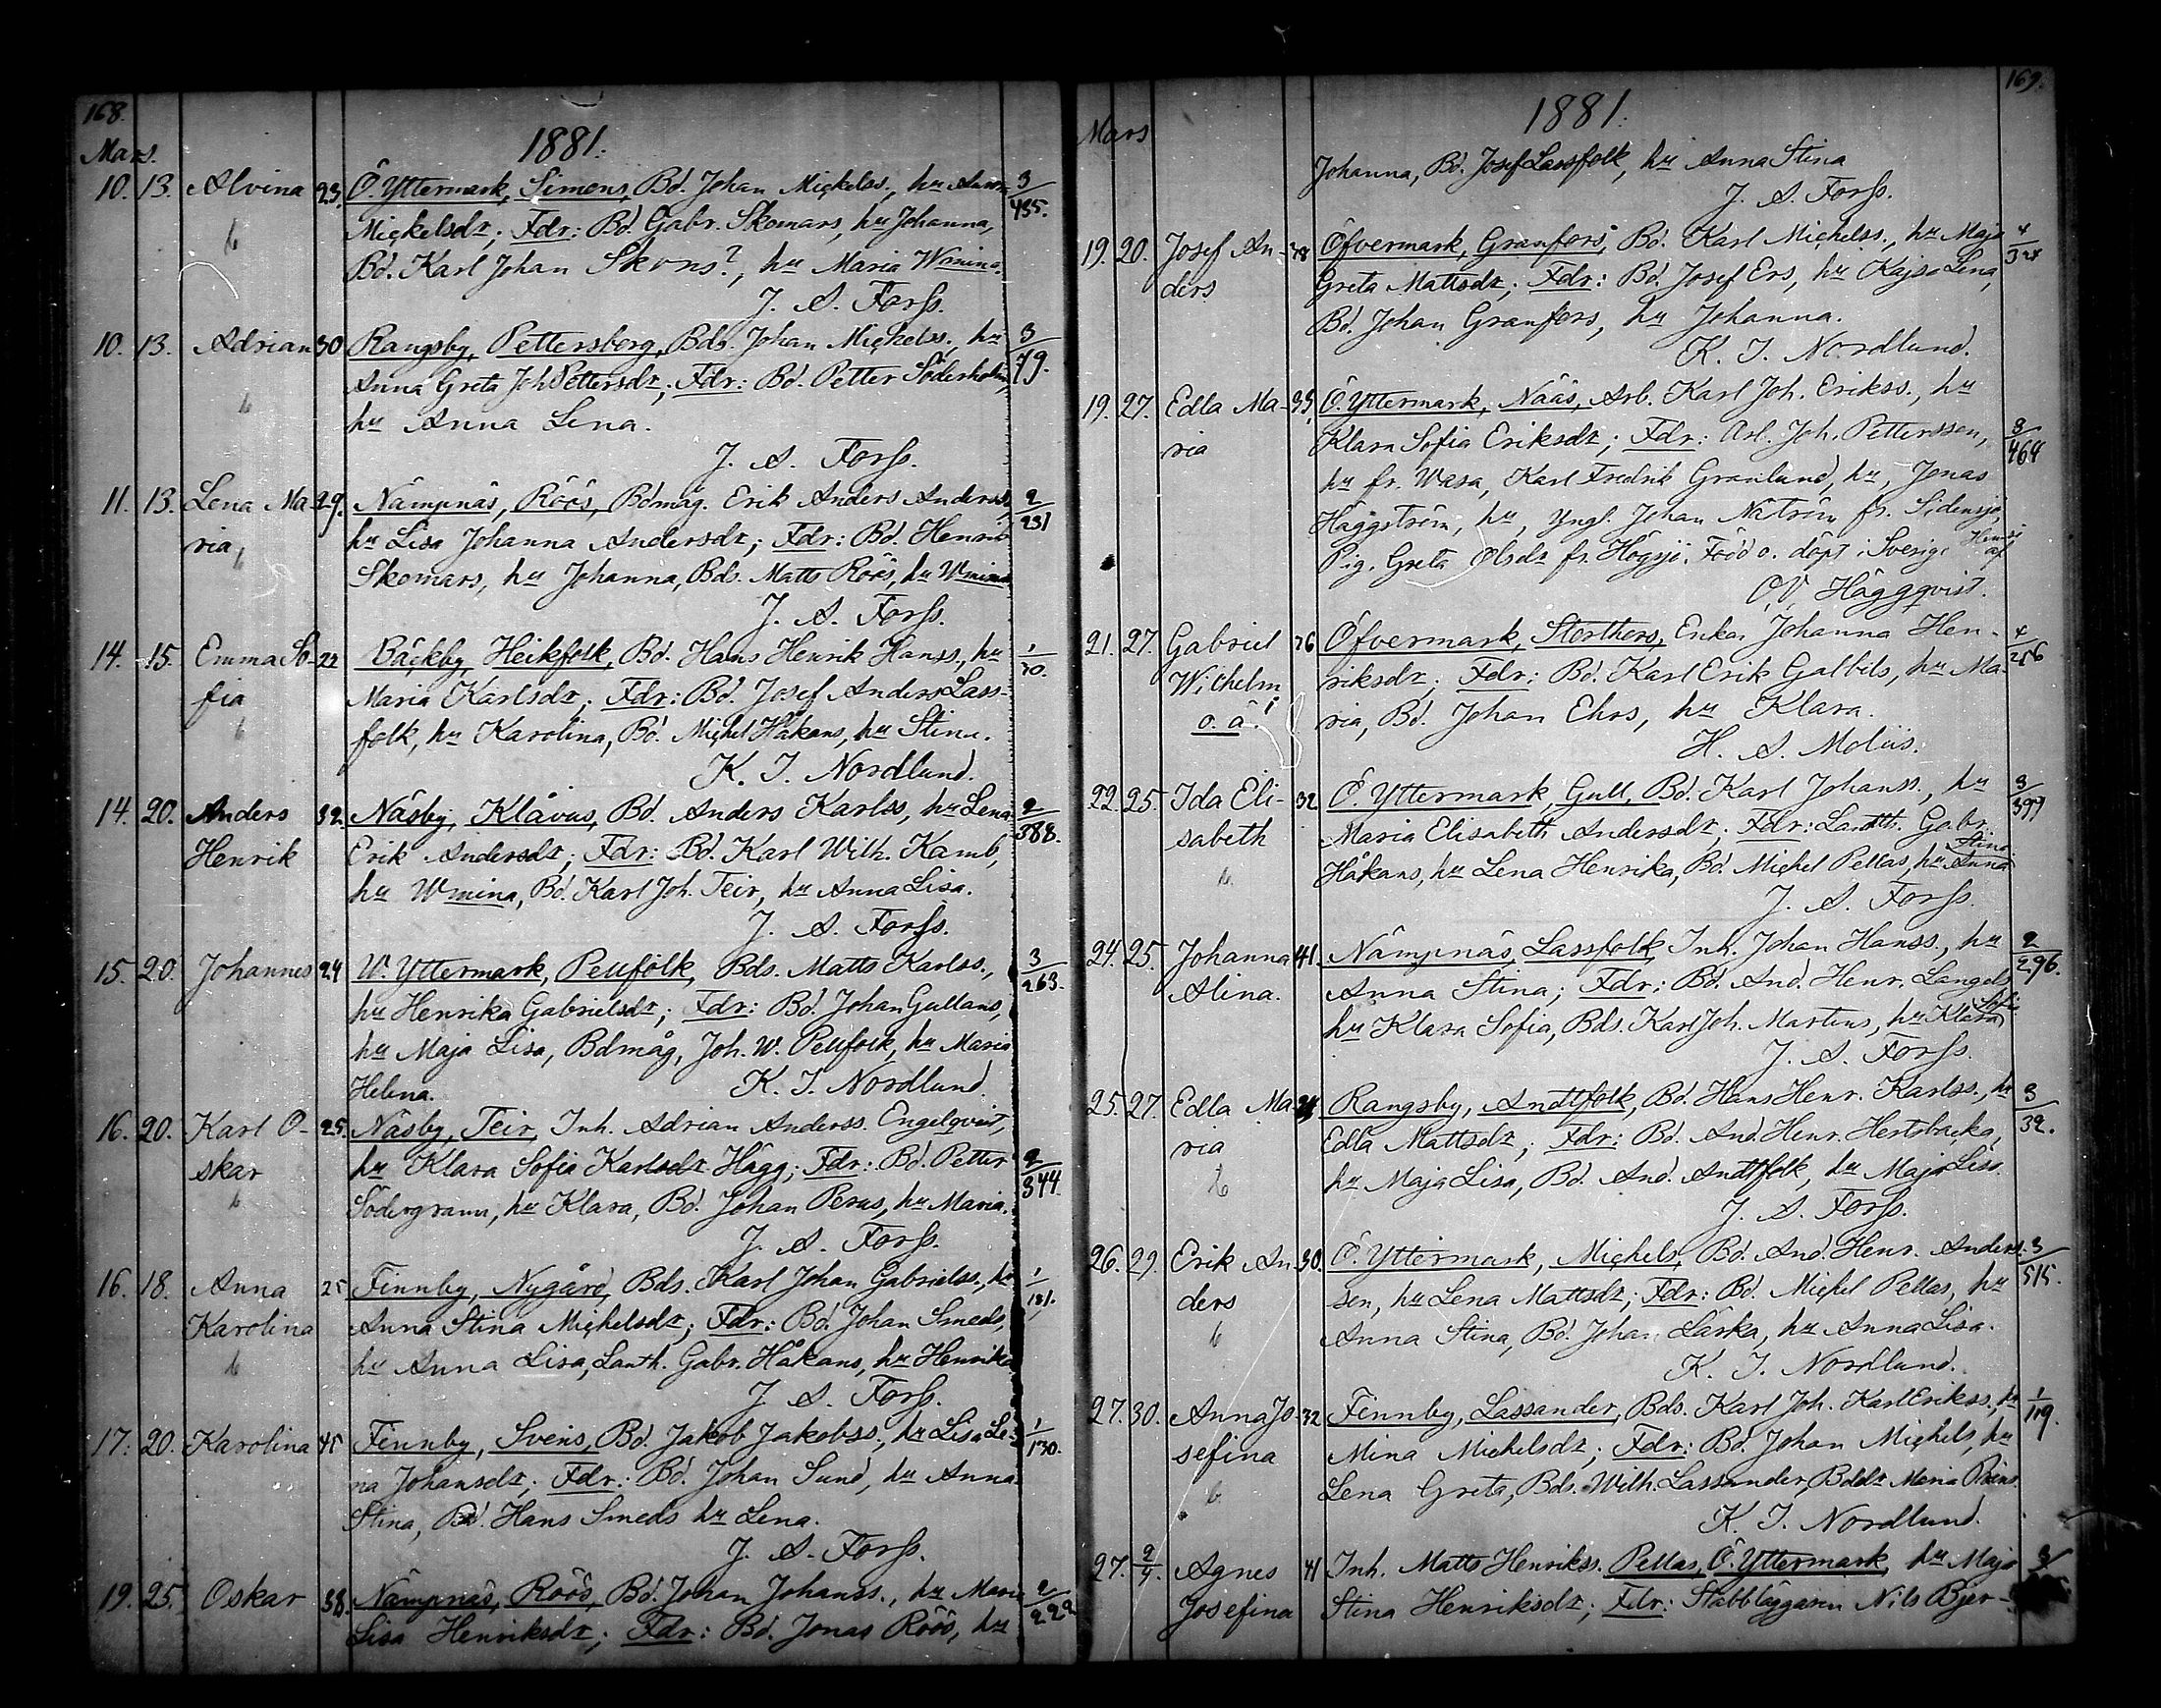 168.
Mars.
1881.
10. 13. Alvina 23. Ö. Yttermark, Simons, Bd. Johan Mickelss., hu Anna 3/435.
Mickelsdr; Fdr: Bd. Gabr. Skomars, hu Johanna,
Bd. Karl Johan Skrns?, hu Maria Wmina.
J. A. Forss.
10. 13. Adrian 30 Rangsby, Pettersberg, Bds. Johan Mickelss., hu 3/79.
Anna Greta Joh Pettersdr; Fdr: Bd. Petter Söderholm,
hu Anna Lena.
J. A. Forss.
11. 13. Lena Ma- 29. Nämpnäs, Röös, Bdmåg. Erik Anders Anderss. 2/231
ria hu Lisa Johanna Andersdr; Fdr: Bd. Henrik
Skomars, hu Johanna, Bds. Matts Röös, hu Wmina
J. A. Forss.
14. 15. Emma So- 22 Bäckby, Heikfolk, Bd. Hans Henrik Hanss., hu 1/30.
fia Maria Karlsdr; Fdr: Bd. Josef Anders Lass-
folk, hu Karolina, Bd. Mickel Håkans, hu Stina.
K. I. Nordlund.
14. 20. Anders 32. Näsby, Klåvus, Bd. Anders Karlss, hu Lena 2/388.
Henrik Erik Andersdr; Fdr: Bd. Karl Wilh. Kamb,
hu Wmina, Bd. Karl Joh. Teir, hu Anna Lisa.
J. A. Forss.
15. 20. Johannes 24 W. Yttermark, Pellfolk, Bds. Matts Karlss., 3/263.
hu Henrika Gabrielsdr; Fdr: Bd. Johan Gullans,
hu Maja Lisa, Bdmåg, Joh. W. Pellfolk, hu Maria
Helena. K. I. Nordlund.
16. 20. Karl O- 25. Näsby, Teir, Inh. Adrian Anderss. Engelqvist,
skar hu Klara Sofia Karlsdr Hägg; Fdr: Bd. Petter 2/344.
Södergrann, hu Klara, Bd. Johan Perus, hu Maria.
J. A. Forss.
16. 18. Anna 25 Finnby, Nygård, Bds. Karl Johan Gabrielss., hu 1/181.
Karolina Anna Stina Mickelsdr; Fdr: Bd. Johan Smeds,
hu Anna Lisa, Lanth. Gabr. Håkans, hu Henrika
J. A. Forss.
17. 20. Karolina 45 Finnby, Svens, Bd. Jakob Jakobss., hu Lisa Le- 1/130.
na Johansdr; Fdr: Bd. Johan Sund, hu Anna
Stina, Bd. Hans Smeds hu Lena.
J. A. Forss.
19. 25. Oskar 38. Nämpnäs, Röös, Bd. Johan Johanss., hu Maria 2/222
Lisa Henriksdr; Fdr: Bd. Jonas Röös, hu
169.
Mars
1881.
Johanna, Bd. Josef Lassfolk, hu Anna Stina
J. A. Forss.
19. 20. Josef An- 38 Öfvermark, Granfors, Bd. Karl Mickelss., hu Maja 4/328
ders Greta Mattsdr; Fdr: Bd. Josef Ers, hu Kajsa Lena,
Bd. Johan Granfors, hu Johanna.
K. I. Nordlund.
19. 27. Edla Ma- 33, Ö. Yttermark, Nääs, Arb. Karl Joh. Erikss., hu
ria Klara Sofia Eriksdr; Fdr: Arb. Joh. Pettersson, 3/464
hu fr. Wasa, Karl Fredrik Granlund, hu, Jonas
Häggström, hu, Yngl. Johan Nätröm fr. Sidensjö,
Pig. Greta Olsdr fr. Högsjö. Född o. döpt i Sverige af
O. V. Häggqvist.
21. 27. Gabriel 26 Öfvermark, Storthors, Enka Johanna Hen- 4/256
Wilhelm riksdr; Fdr: Bd. Karl Erik Galbils, hu Ma-
o. ä. ria, Bd. Johan Ehrs, hu Klara.
H. A. Moliis.
22. 25. Ida Eli- 32 Ö. Yttermark, Gull, Bd. Karl Johanss., hu 3/399
sabeth Maria Elisabeth Andersdr; Fdr: Lanth. Gabr.
Håkans, hu Lena Henrika, Bd. Mickel Pellas, hu Anna Stina
J. A. Forss.
24. 25. Johanna 41. Nämpnäs, Lassfolk, Inh. Johan Hanss., hu 2/296.
Alina. Anna Stina; Fdr: Bd. And. Henr. Langels
hu Klara Sofia, Bds. Karl Joh. Martens, hu Klara Sofia
J. A. Forss.
25. 27. Edla Ma- 24 Rangsby, Andtfolk, Bd. Hans Henr. Karlss., hu 3/32.
ria Edla Mattsdr; Fdr: Bd. And. Henr. Hertsbacka,
hu Maja Lisa, Bd. And. Andtfolk, hu Maja Lisa.
J. A. Forss.
26. 29. Erik An- 30. Ö. Yttermark, Mickels, Bd. And. Henr. Anders- 3/515.
ders son, hu Lena Mattsdr; Fdr: Bd. Mickel Pellas, hu
Anna Stina, Bd. Johan Lärka, hu Anna Lisa.
K. I. Nordlund.
27. 30. Anna Jo- 32 Finnby, Lassander, Bds. Karl Joh. Karl Erikss., hu 1/119.
sefina Mina Mickelsdr; Fdr: Bd. Johan Mickels, hu
Lena Greta, Bds. Wilh. Lassander, Bddr Maria
K. I. Nordlund.
27. 2/4. Agnes 41 Inh. Matts Henrikss. Pellas, Ö. Yttermark, hu Maja 3/
Josefina Stina Henriksdr; Fdr: Stabbläggaren Nils Bjer-